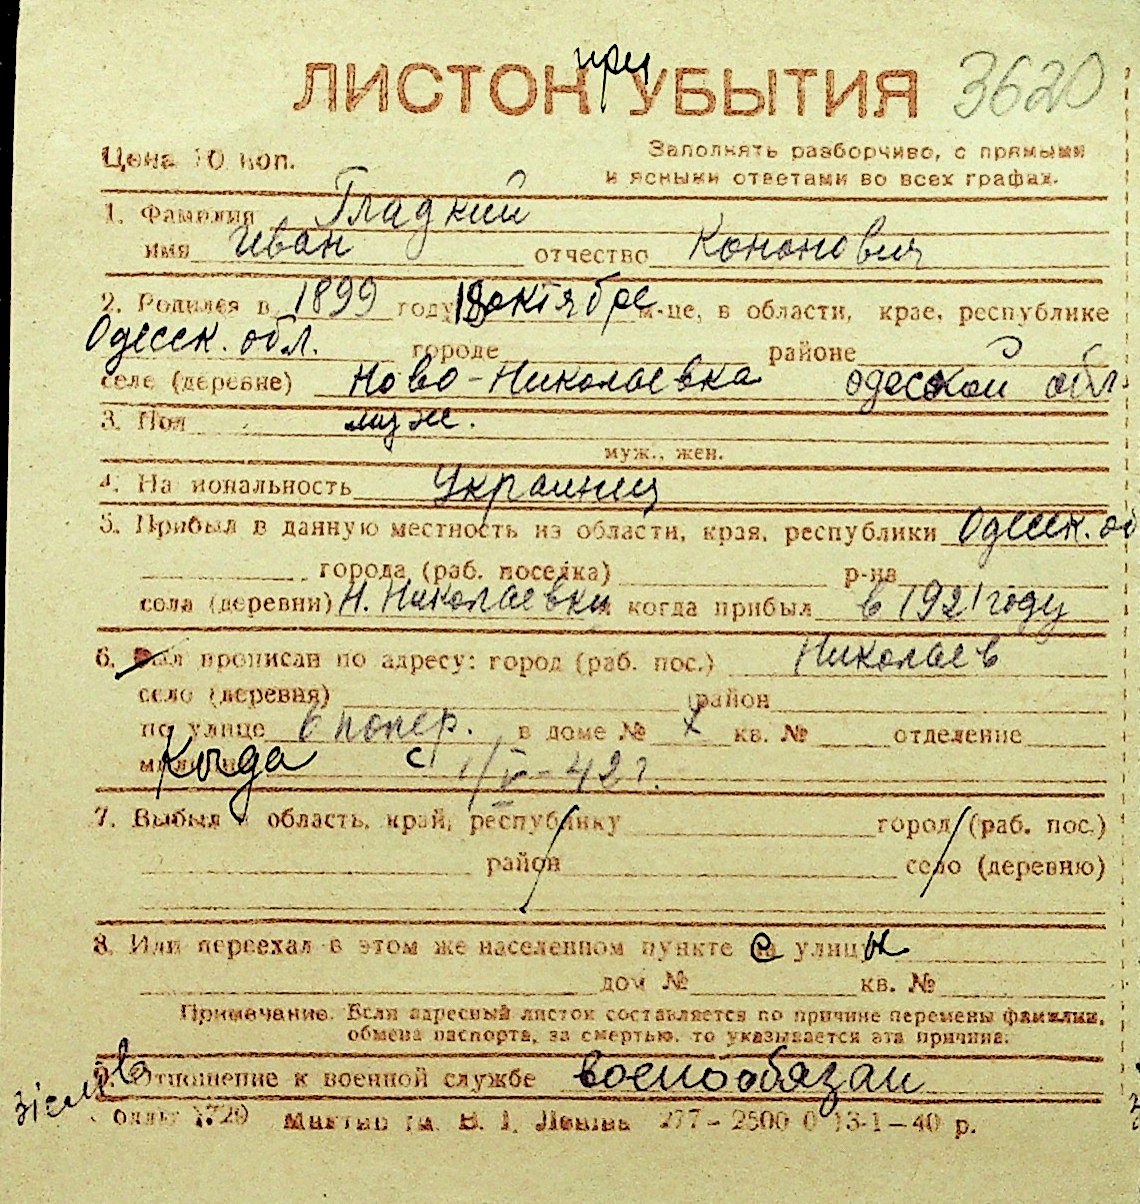 при
ЛИСТОК УБЫТИЯ 3620
Цена 10 коп. Заполнять разборчиво, с прямыми
и ясными ответами во всех графах.
1. Фамилия Гладкий
имя Иван отчество Кононович
2. Родился в 1899 году 18 октября м-це, в области, крае, республике
Одесск. обл. городе районе
селе (деревне) Ново-Николаевка одеской обл
3. Пол муж.
муж., жен.
4. На иональность Украинец
5. Прибыл в данную местность из области, края, республики Одесск. об
города (раб. поселка) р-на
села (деревни) Н. Николаевки когда прибыл в 1921 году
6. прописан по адресу: город (раб. пос.) Николаев
село (деревня) район
по улице 6 попер. в доме № кв. № отделение
Когда с 1/V-42 г.
7. Выбыл в область, край, республику город (раб. пос.)
район село (деревню)
8. Или переехал в этом же населенном пункте с улицы
дом № кв. №
Примечание. Если адресный листок составляется по причине перемены фамилии,
обмена паспорта, за смертью, то указывается эта причина:
9. Отношение к военной службе военообязан
1720 им. В. І. Леніна 277-2500 0 13-1-40 р.